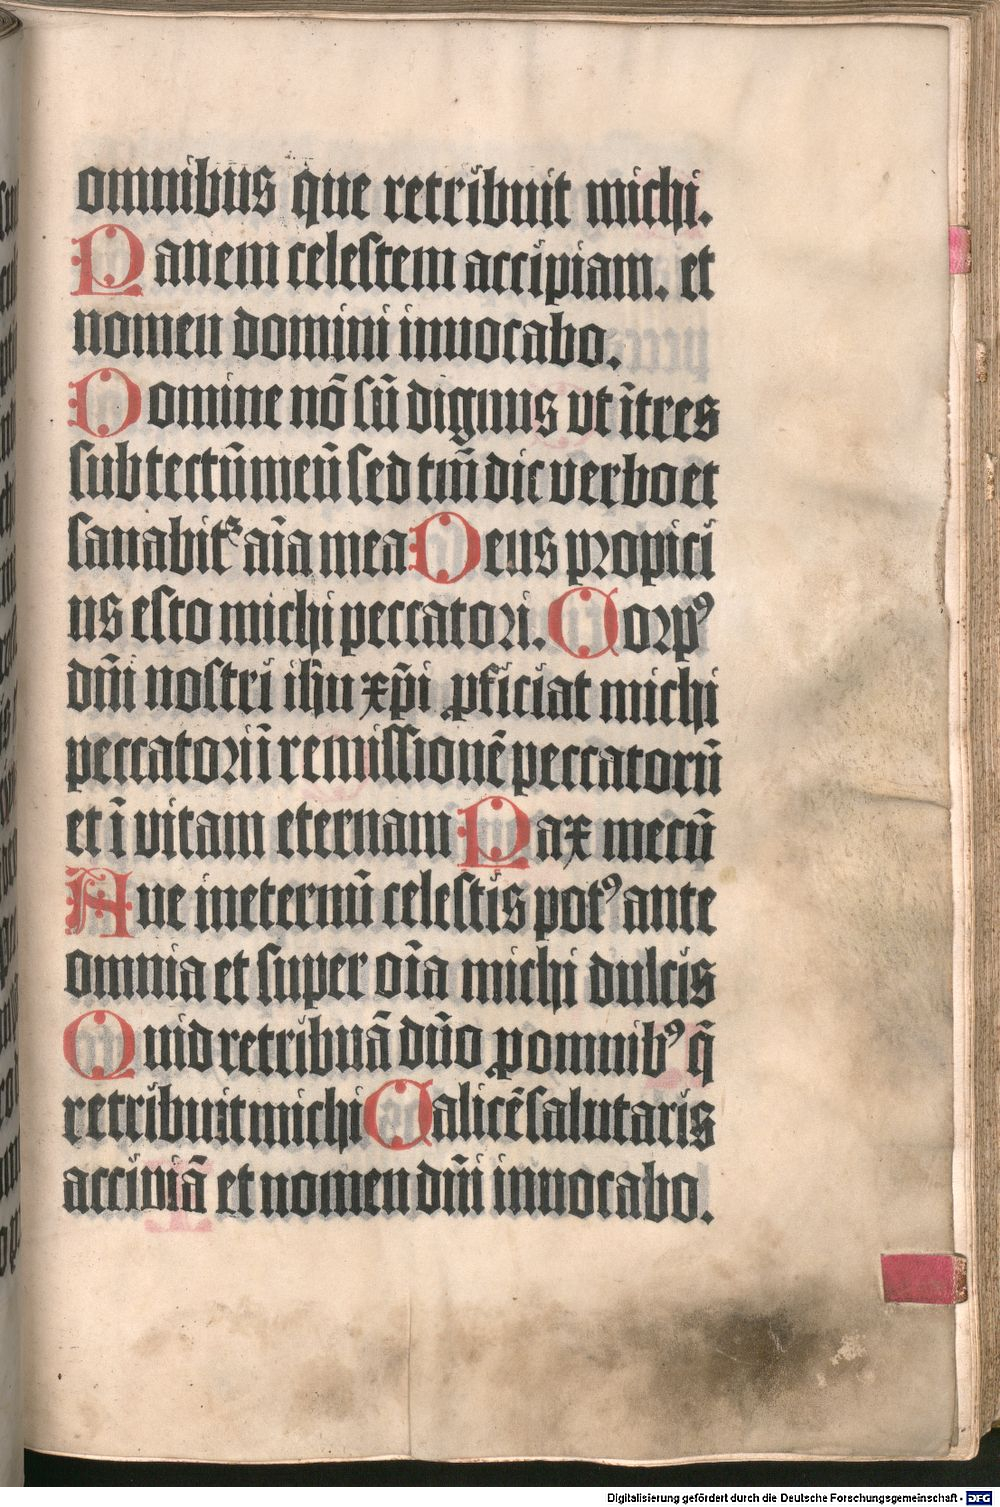 omnibus que retribuit michi.
Panem celestem accipiam. et
nomen domini inuocabo.
Domine nō sū dignus vt ītres
sub tectū meū sed tm̄ dic verbo et
sanabit᷑ aīa mea Deus propici
us esto michi peccatori. Corpꝰ
dm̄i nostri ih̄u xp̄i ꝓficiat michi
peccatori ī remissionē peccatorū
et ī vitam eternam Pax mecū
Aue ineternū celestis potꝰ ante
omnia et super oīa michi dulcis
Quid retribuā dn̄o ꝓ omnibꝰ q̄
retribuit michi Calicē salutaris
accipiā et nomen dm̄i inuocabo.
Digitalisierung gefördert durch die Deutsche Forschungsgemeinschaft - DFG